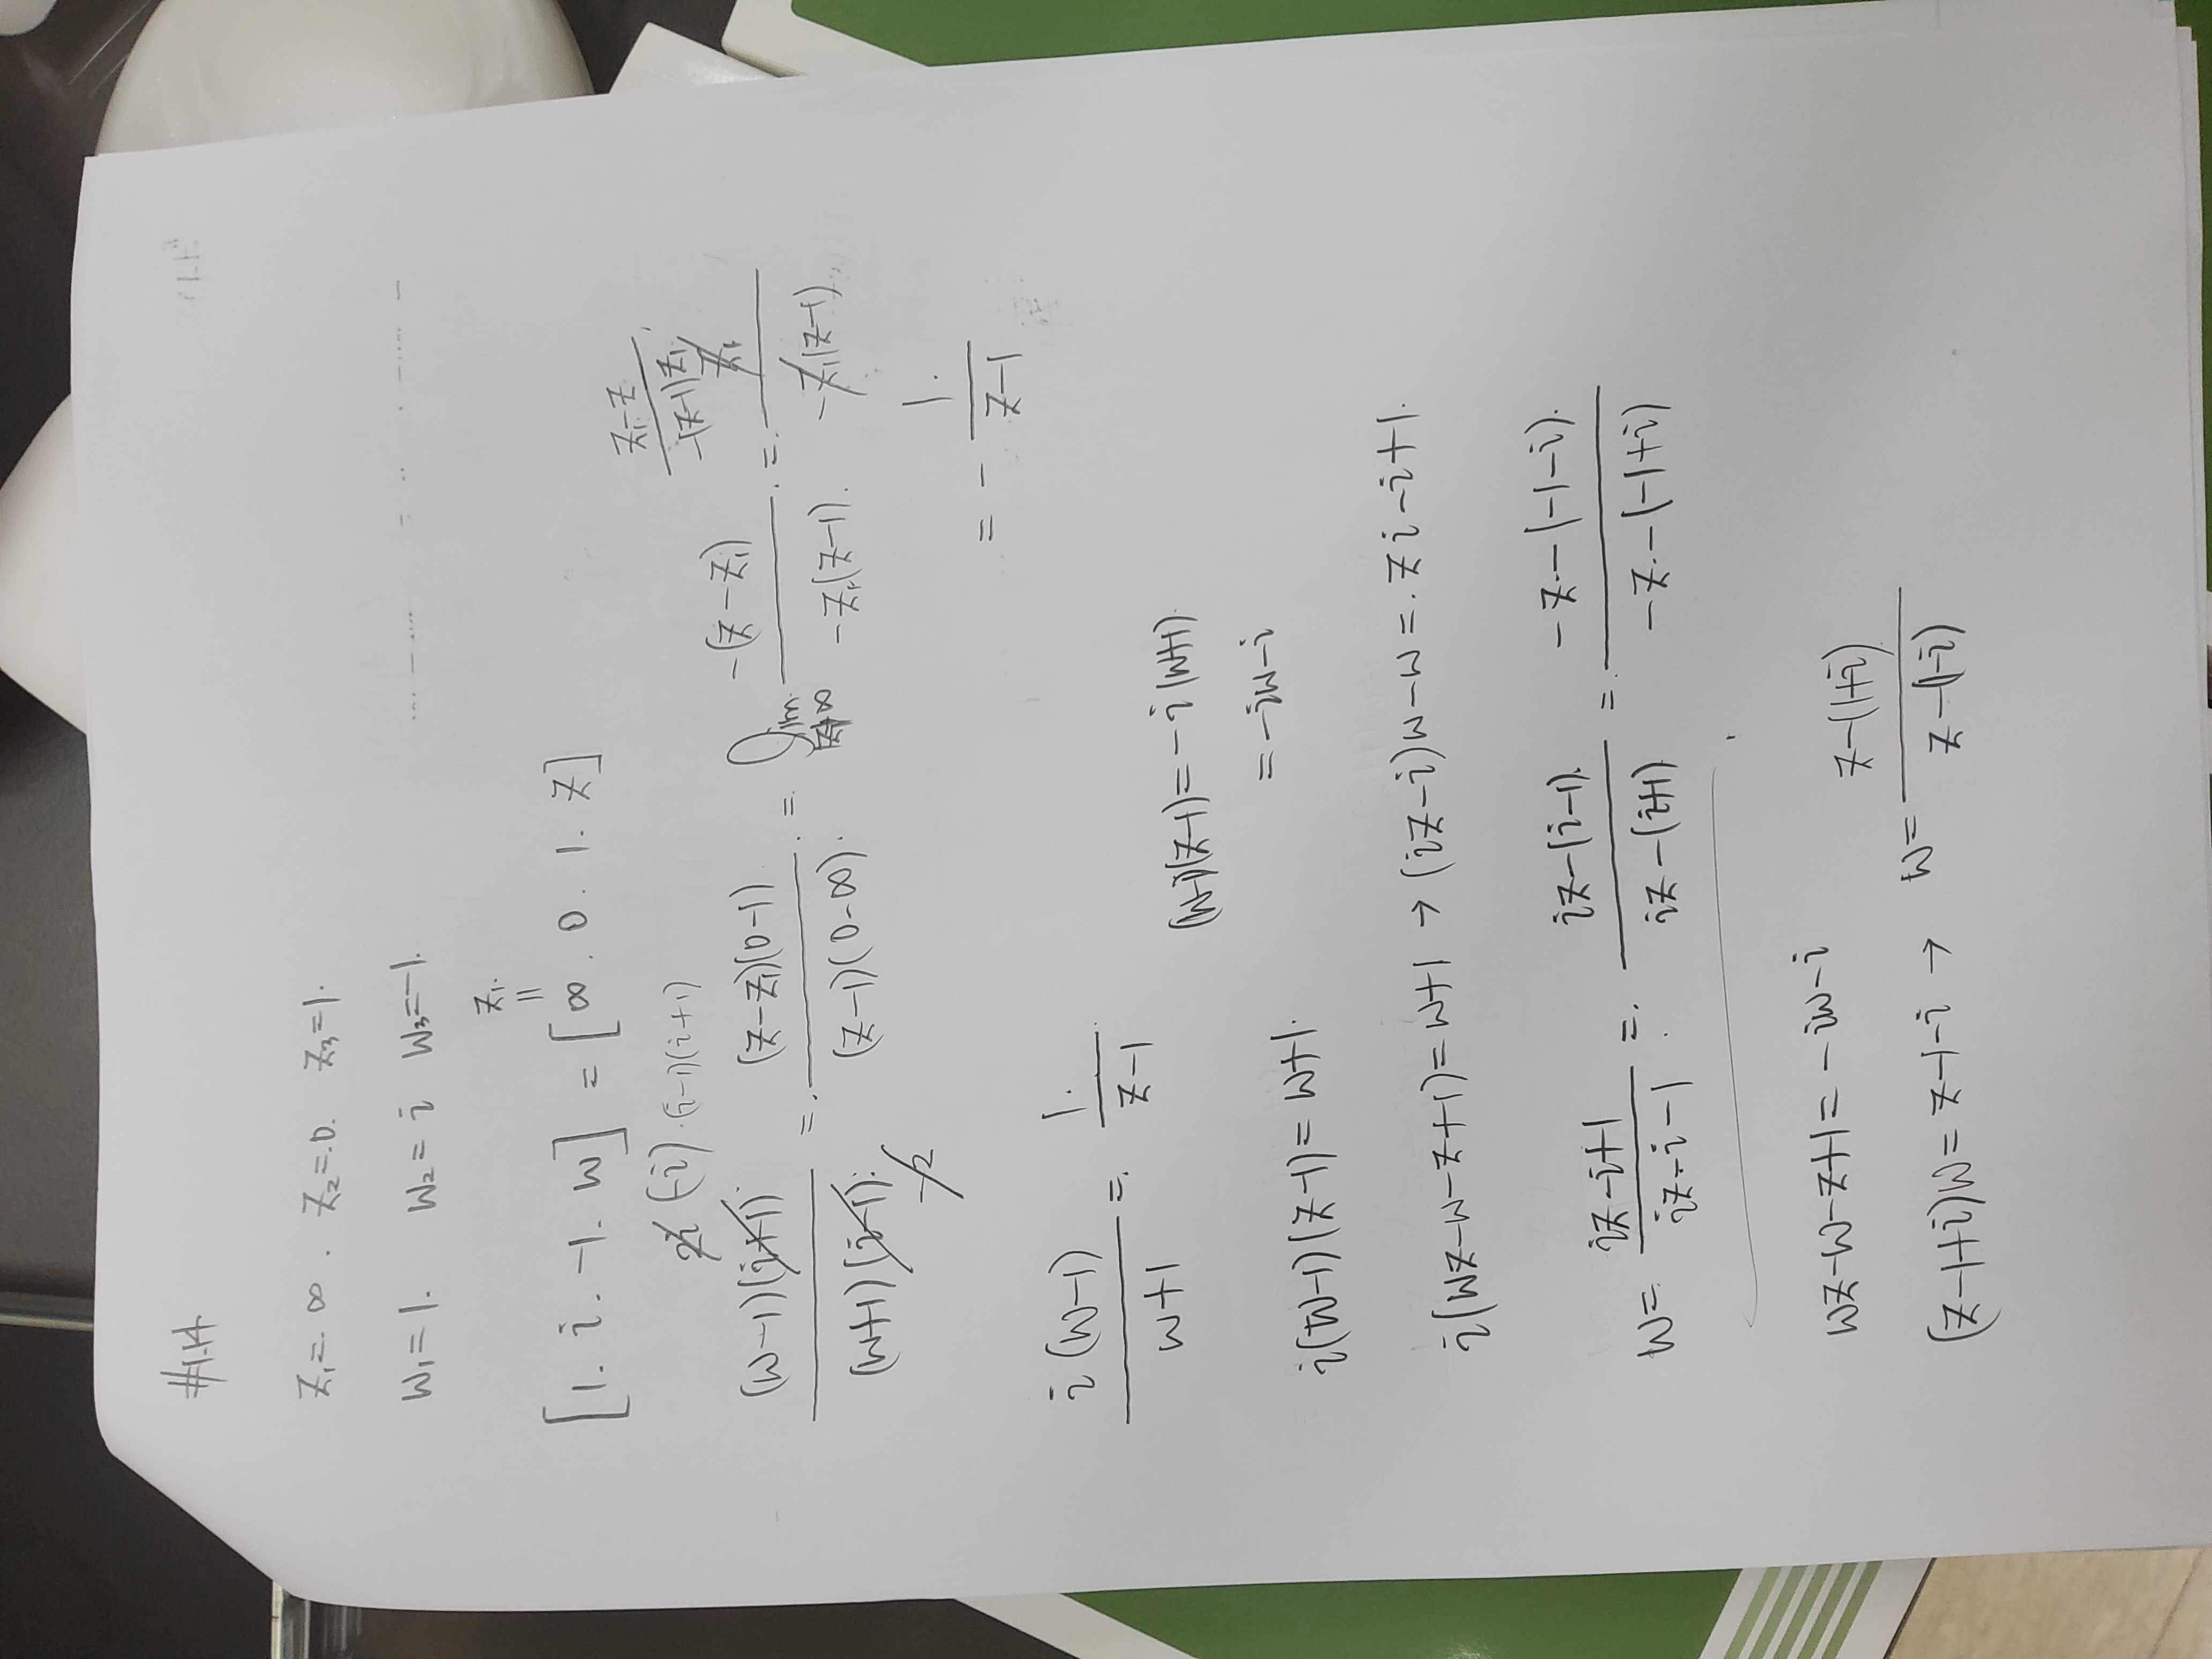 #1-14
z₁=∞. z₂=0. z₃=1.
w₁=1. w₂=i w₃=-1.
z₁
=
[1. i. -1. w] = [∞. 0. 1. z]
2i (-i)·(i-1)(i+1)
(w-1)(i+1) / (w+1)(i-1) = (z-z₁)(0-1) / (z-1)(0-∞) = lim z₁→∞ -(z-z₁) / -z₁(z-1) = (z₁-z) / -(z-1)z₁
-2
= - 1 / (z-1)
i(w-1) / (w+1) = 1 / (z-1)
(w-1)(z-1)=-i(w+1)
= -iw-i
i(w-1)(z-1)=w+1.
i(wz-w-z+1)=w+1 → (iz-i)w-w = zi-i+1.
w= (iz-i+1) / (iz-i-1) = (iz-(i-1)) / (iz-(i+1)) = (-z-(-1-i)) / (-z-(-1+i))
wz-w-z+1=-iw-i
(z-1+i)w = z-1-i → w= (z-(1+i)) / (z-(1-i))